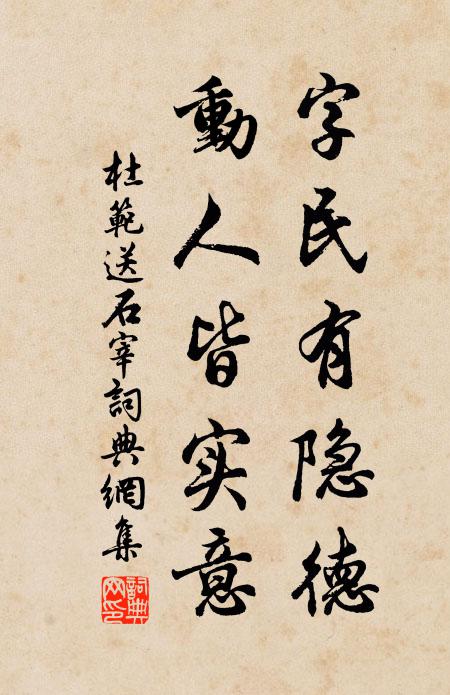 字民有隐德
動人皆实意
杜範送石宰詞典網集
詞典